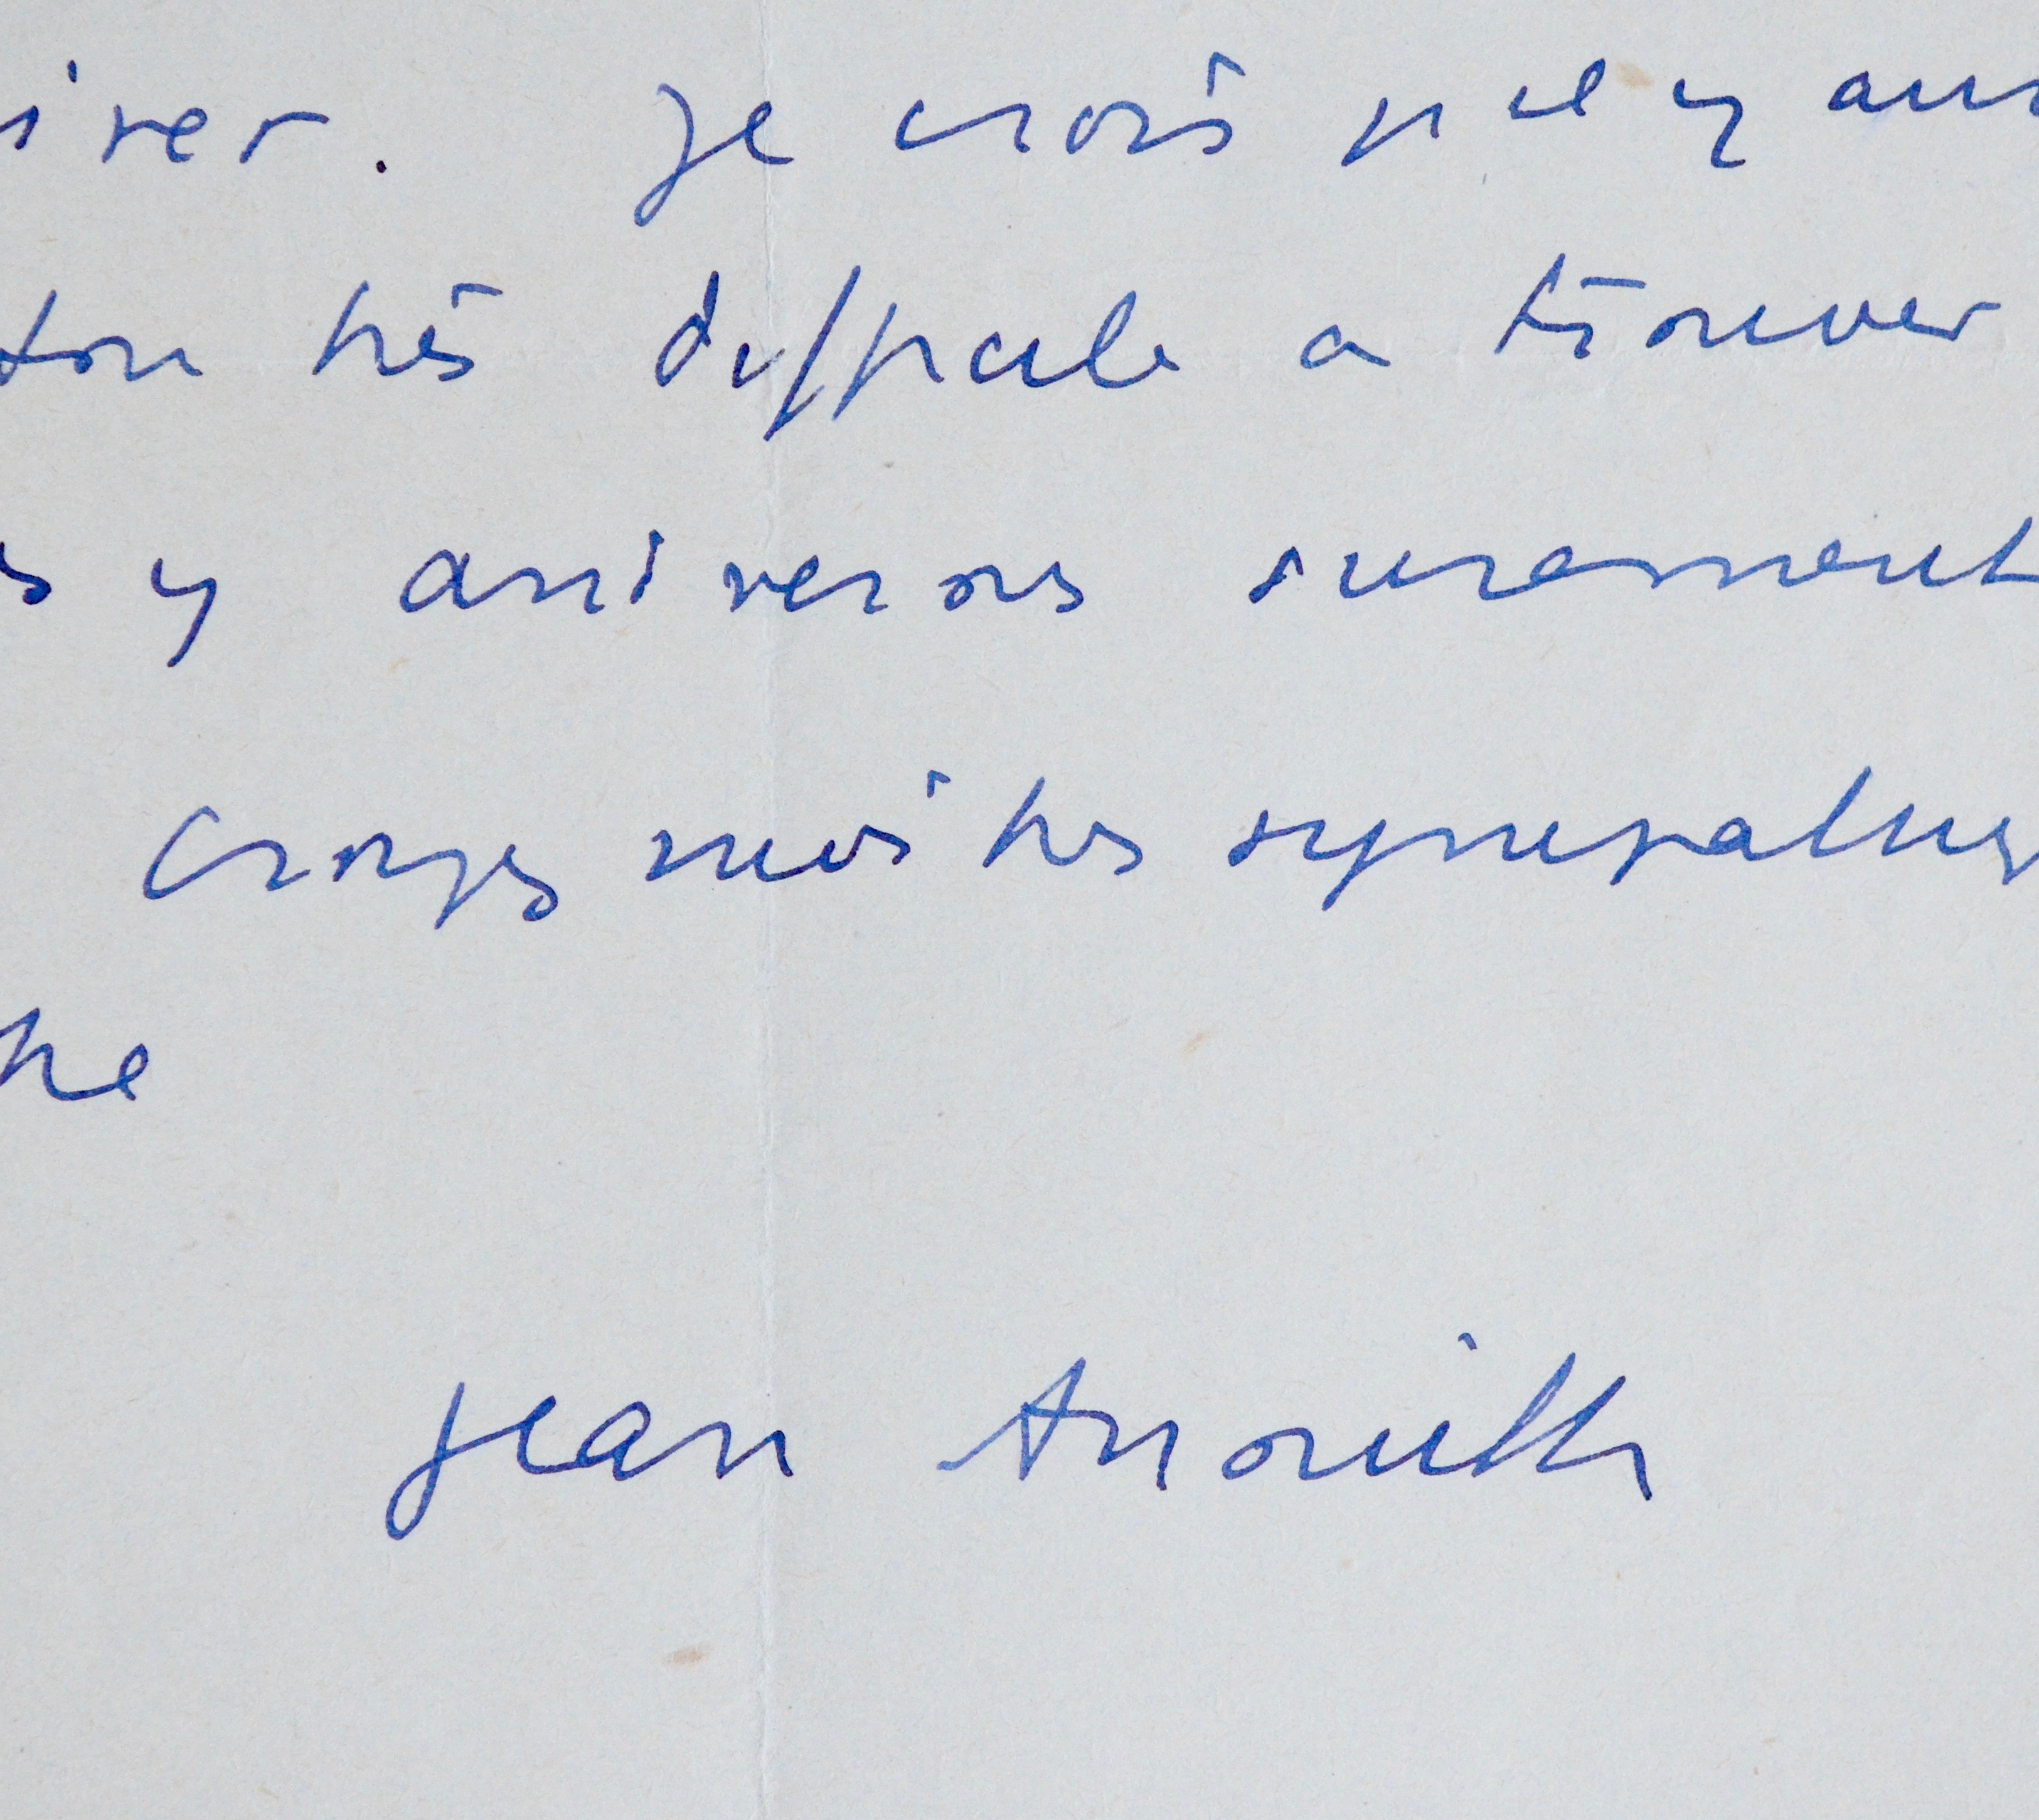 iver. Je crois qu'il y aur
ton très difficile a trouver
s y arriverons surement
Croyez moi très sympathiq
tre
Jean Anouilh